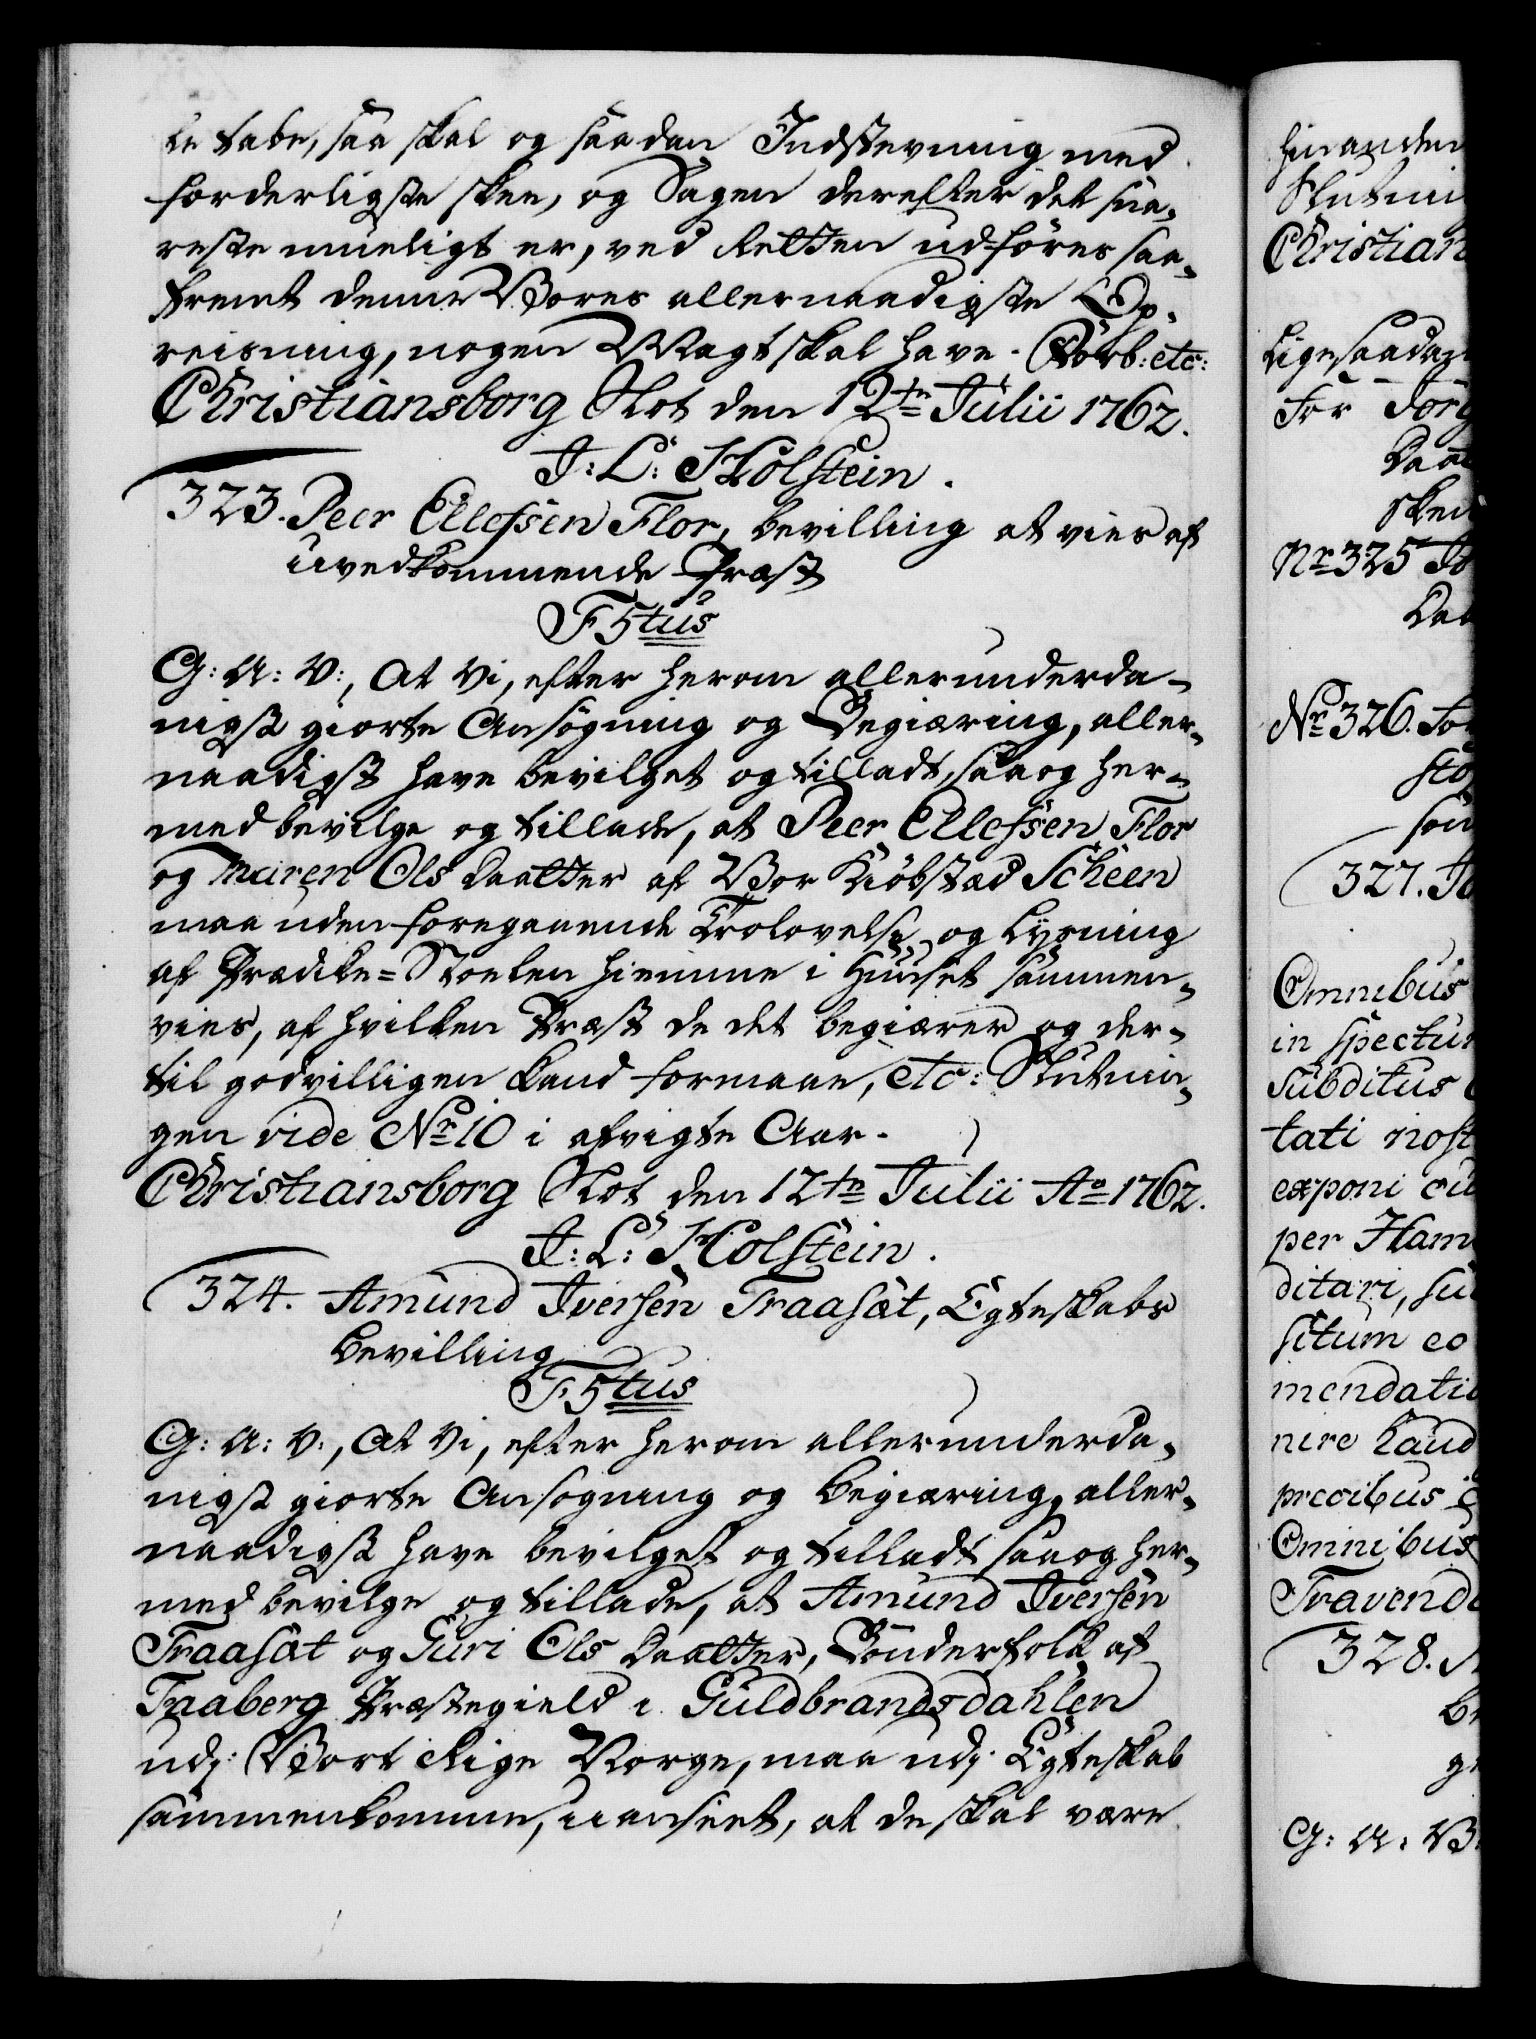 le tabe, saa skal og saadan Indstevning med
forderligste skee, og Sagen derefter det sna-
reste mueligt er, ved Retten udføres saa-
fremt denne Vores allernaadigste Op-
reisning, nogen Magt skal have. Forb: etc:
Christiansborg Slot den 12te Julii 1762.
J: L: Holstein.
323. Peer Ellefsen Flor, bevilling at vies af
uvedkommende Præst
F5tus
G: A: V:, At Vi, efter herom allerunderda-
nigst giorte Ansøgning og Begiæring, aller-
naadigst have bevilget og tilladt, saa og her-
med bevilge og tillade, at Peer Ellefsen Flor
og Maren Ols Daatter af Vor Kiøbstad Scheen
maa uden foregaaende Trolovelse og Lysning
af Prædike-Stoelen hiemme i Huuset sammen-
vies, af hvilken Præst de det begiærer og der-
til godvilligen kand formaae, etc: Slutnin-
gen vide No 10 i afvigte Aar.
Christiansborg Slot den 12te Julii Ao 1762.
J: L: Holstein.
324. Amund Iversen Traasæt, Egteskabs
bevilling
F5tus
G: A: V:, At Vi, efter herom allerunderda-
nigst giorte Ansøgning og begiæring, aller-
naadigst have bevilget og tilladt saa og her-
med bevilge og tillade, at Amund Iversen
Traasæt og Guri Ols Daatter, Bønderfolk af
Faaberg Præstegield i Guldbrandsdahlen
udj Vort Rige Norge, maa udj Egteskab
sammenkomme, uanseet, at de skal være
hinanden
Slutnin
Christian
Ligesaadan
For Jörg
Daa
Skeu
No 325 Jo
Dat
No 326.
327.
Omnibus
in spectur
Subditus
tati nost
exponi cu
per Ham
ditari, su
situm eo
mendatio
nire haud
precibus
Omnibus
Travenda
328.
G: A: V: